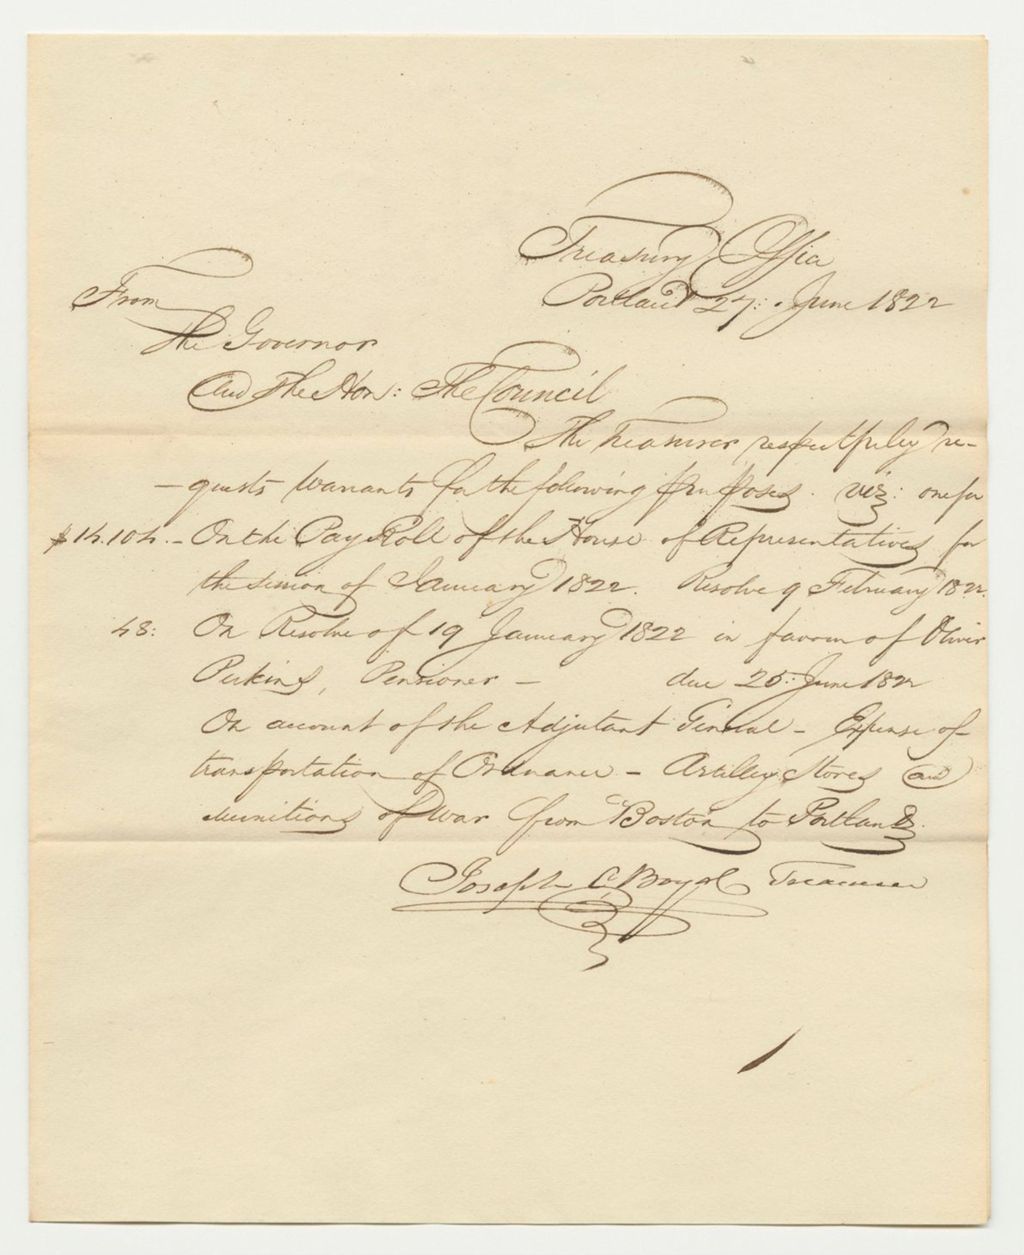 Treasury Office
Portland 27: June 1822
From
The Governor
And The Hon: The Council
The Treasurer respectfully re-
-quests Warrants for the following purposes. viz: one for
$14.104.- On the Pay Roll of the House of Representatives for
the session of January 1822. Resolve 9 February 1822.
48: On Resolve of 19 January 1822 in favour of Oliver
Perkins, Pensioner - due 25: June 1822
On account of the Adjutant General - Expense of
transportation of Ordnance - Artillery Stores and
Munitions of War from Boston to Portland.
Joseph C. Boyd Treasurer